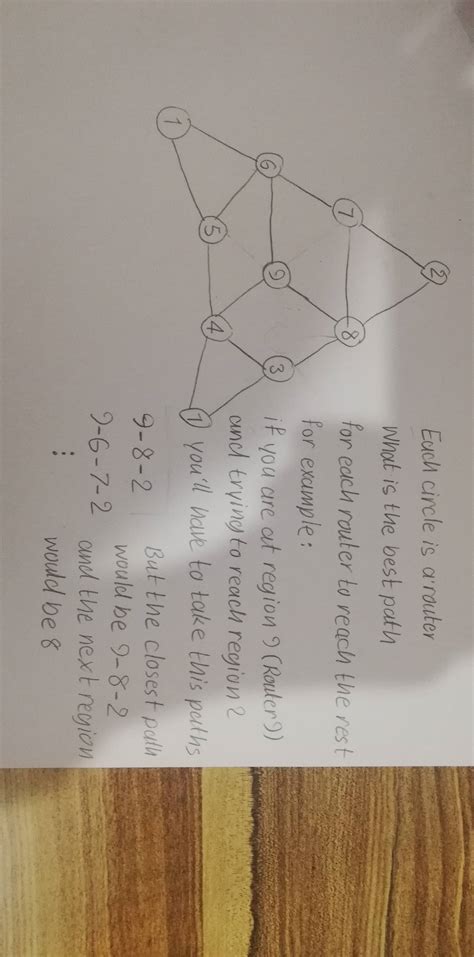 Each circle is a router
What is the best path
for each router to reach the rest
for example:
if you are at region 9 (Router9))
and trying to reach region 2
you'll have to take this paths
9-8-2 But the closest path
would be 9-8-2
9-6-7-2 and the next region
would be 8
2
7
8
6
9
3
5
4
1